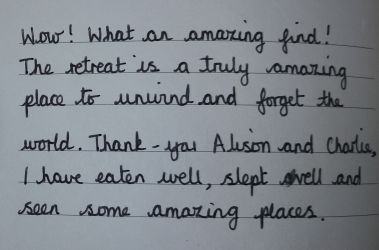 Wow! What an amazing find!
The retreat is a truly amazing
place to unwind and forget the
world. Thank-you Alison and Charlie,
I have eaten well, slept well and
seen some amazing places.